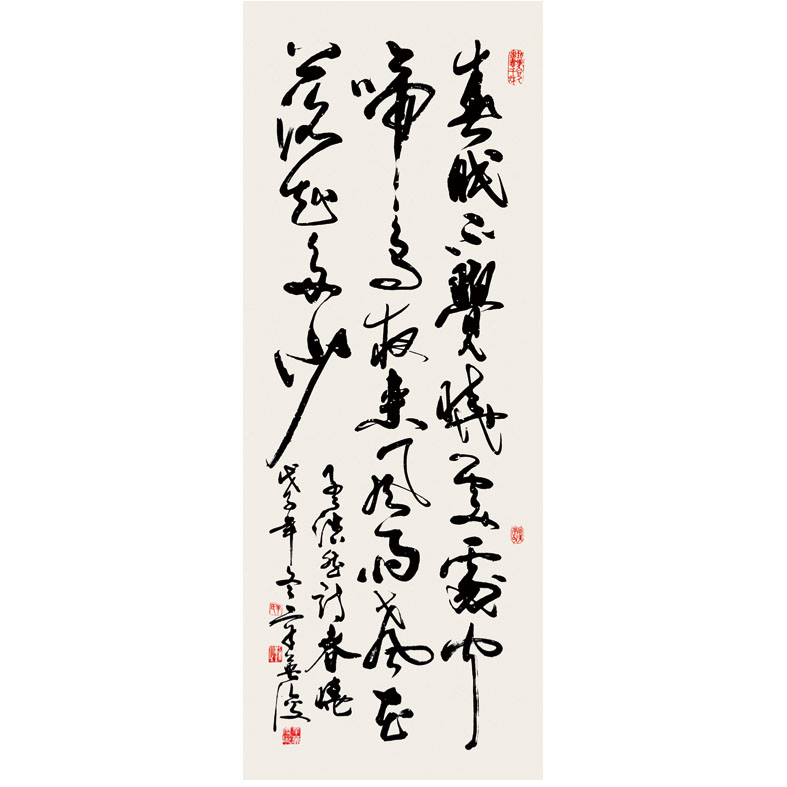 春眠不覺曉處處聞
啼鳥夜来風雨聲花
落知多少
孟浩然詩春曉
戊子年冬